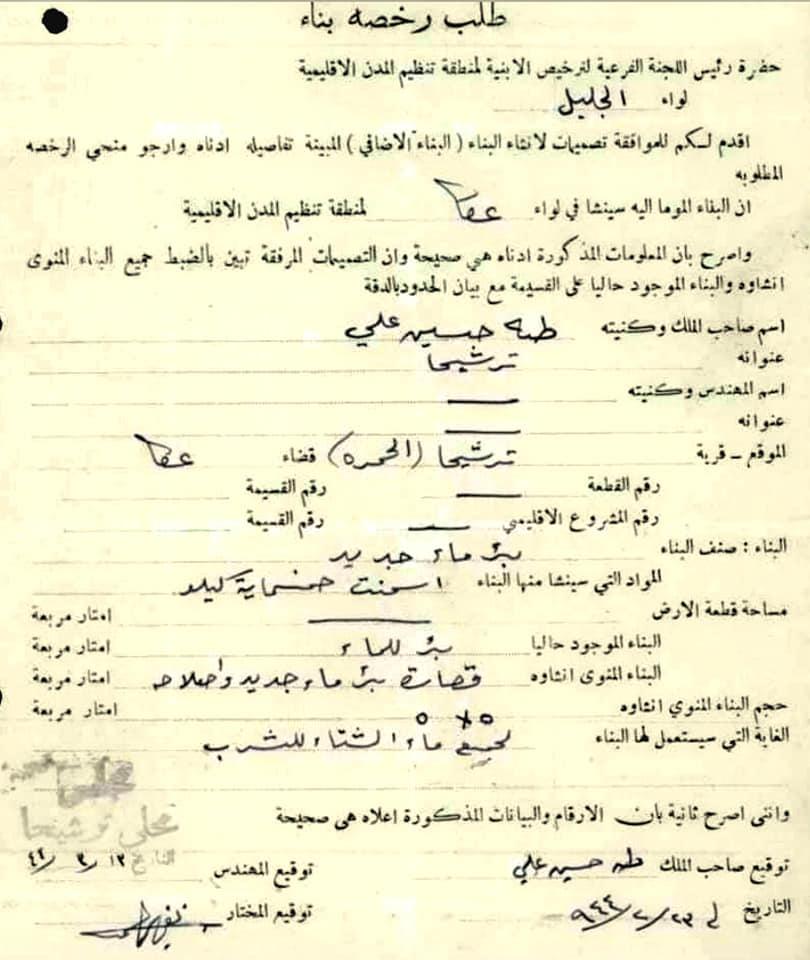 طلب رخصه بناء
حضرة رئيس اللجنة الفرعية لترخيص الابنية لمنطقة تنظيم المدن الاقليمية
لواء الجليل
اقدم لسكم للموافقة تصميمات لانشاء البناء ( البناء الاضافي ) المبينة تفاصيله ادناه وارجو منحي الرخصه
المطلوبه
ان البناء الموما اليه سينشا في لواء عكا لمنطقة تنظيم المدن الاقليمية
واصرح بان المعلومات المذكورة ادناه هي صحيحة وان التصميمات المرفقة تبين بالضبط جميع البناء المنوى
انشاوه والبناء الموجود حاليا على القسيمة مع بيان الحدود بالدقة
اسم صاحب الملك وكنيته طه حسين علي
عنوانه ترشيحا
اسم المهندس وكنيته
عنوانه
الموقع - قرية ترشيحا (الحمره) قضاء عكا
رقم القطعة رقم القسيمة
رقم المشروع الاقليمي رقم القسيمة
البناء : صنف البناء بئر ماء جديد
المواد التي سينشا منها البناء اسمنت خمسماية كيلو
مساحة قطعة الارض امتار مربعة
البناء الموجود حاليا بئر للماء امتار مربعة
البناء المنوى انشاوه قصارة بئر ماء جديد واصلاحه امتار مربعة
حجم البناء المنوي انشاوه امتار مربعة
الغاية التي سيستعمل لها البناء لجميع ماء الشتاء للشرب
مجلس
محلي ترشيحا
وانني اصرح ثانية بان الارقام والبيانات المذكورة اعلاه هي صحيحة
توقيع صاحب الملك طه حسين علي توقيع المهندس
التاريخ في ٢٣/٢/٩٤٤ توقيع المختار